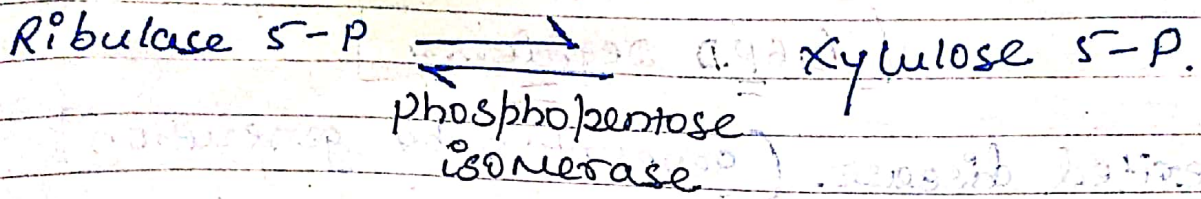 Ribulase 5-P ⇌ Xylulose 5-P.
phosphopentose
isomerase